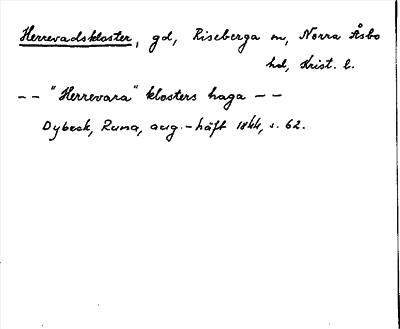 Herrevadskloster, gd, Riseberga sn, Norra Åsbo
hd, Krist. l.
-- "Herrevara" klosters haga --
Dybeck, Runa, aug.-häft 1844, s. 62.